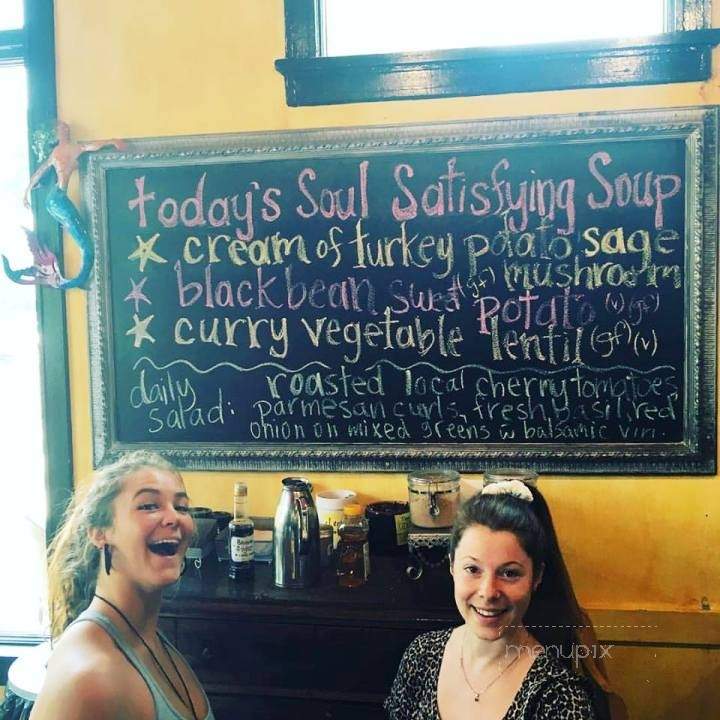 today's Soul Satisfying Soup
cream of turkey potato sage
(gf) mushroom
black bean sweet potato (v) (gf)
curry vegetable lentil (gf) (v)
daily salad:
roasted local cherry tomatoes,
parmesan curls, fresh basil, red
onion on mixed greens w balsamic vin.
menupix